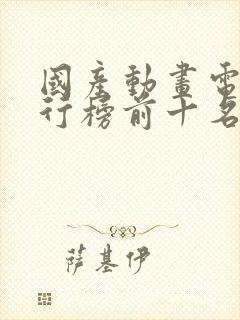 國產動畫電
行榜前十名
薩基伊